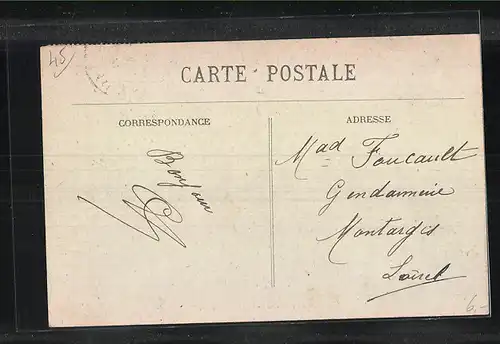 45
CARTE POSTALE
CORRESPONDANCE
ADRESSE
Bonjour
Mad Foucault
Gendarmerie
Montargis
Loiret
6,-